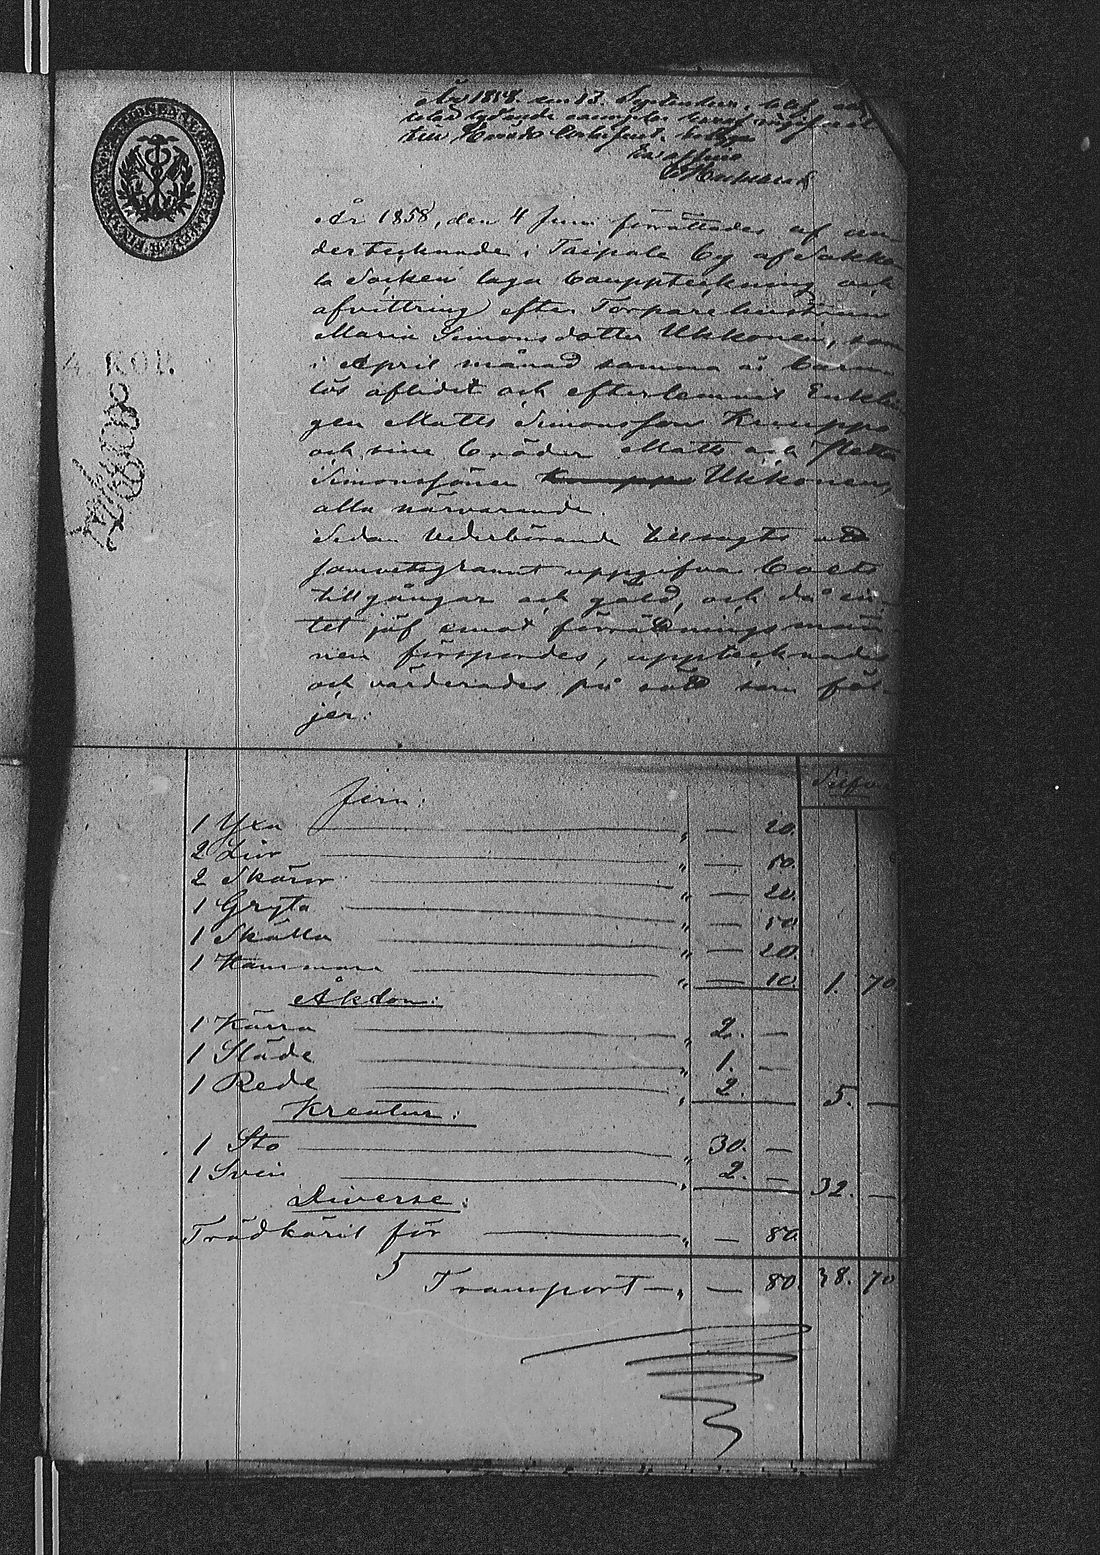 År 1858 den 13 September, blef
lydande exemplar häraf
till Härads
År 1858, den 4 Juni förrättades af un
dertecknade i Taipale by af Sakko
la Socken laga bouppteckning och
afvittring efter Torparehustrun
Maria Simonsdotter Ukkonen, som
i April månad samma år barn
lös aflidit och efterlemnat Enklin
gen Matts Simonsson Kruuppo
och sine bröder Matts och Petter
Simonssöner Ukkonen,
alla närvarande.
Sedan Vederbörande tillsagts att
samvetsgrannt uppgifva boets
tillgångar och gäld, och då in
tet jäf emot förrättningsmän
nen förspordes, upptecknades
och värderades på sätt som föl
jer:
4. KOP.
Silfver
Jern:
1 Yxa " — 20.
2 Liar " — 50.
2 Skäror " — 20.
1 Gryta " — 50
1 Skälla " — 20.
1 Hammare " — 10 1. 70
Åkdon:
1 Kärra " 2. —
1 Släde " 1. —
1 Rede " 2. — 5. —
Kreatur:
1 Sto " 30. —
1 Svin " 2. — 32. —
Diverse:
Trädkäril för " — 80.
Transport " — 80. 38. 70